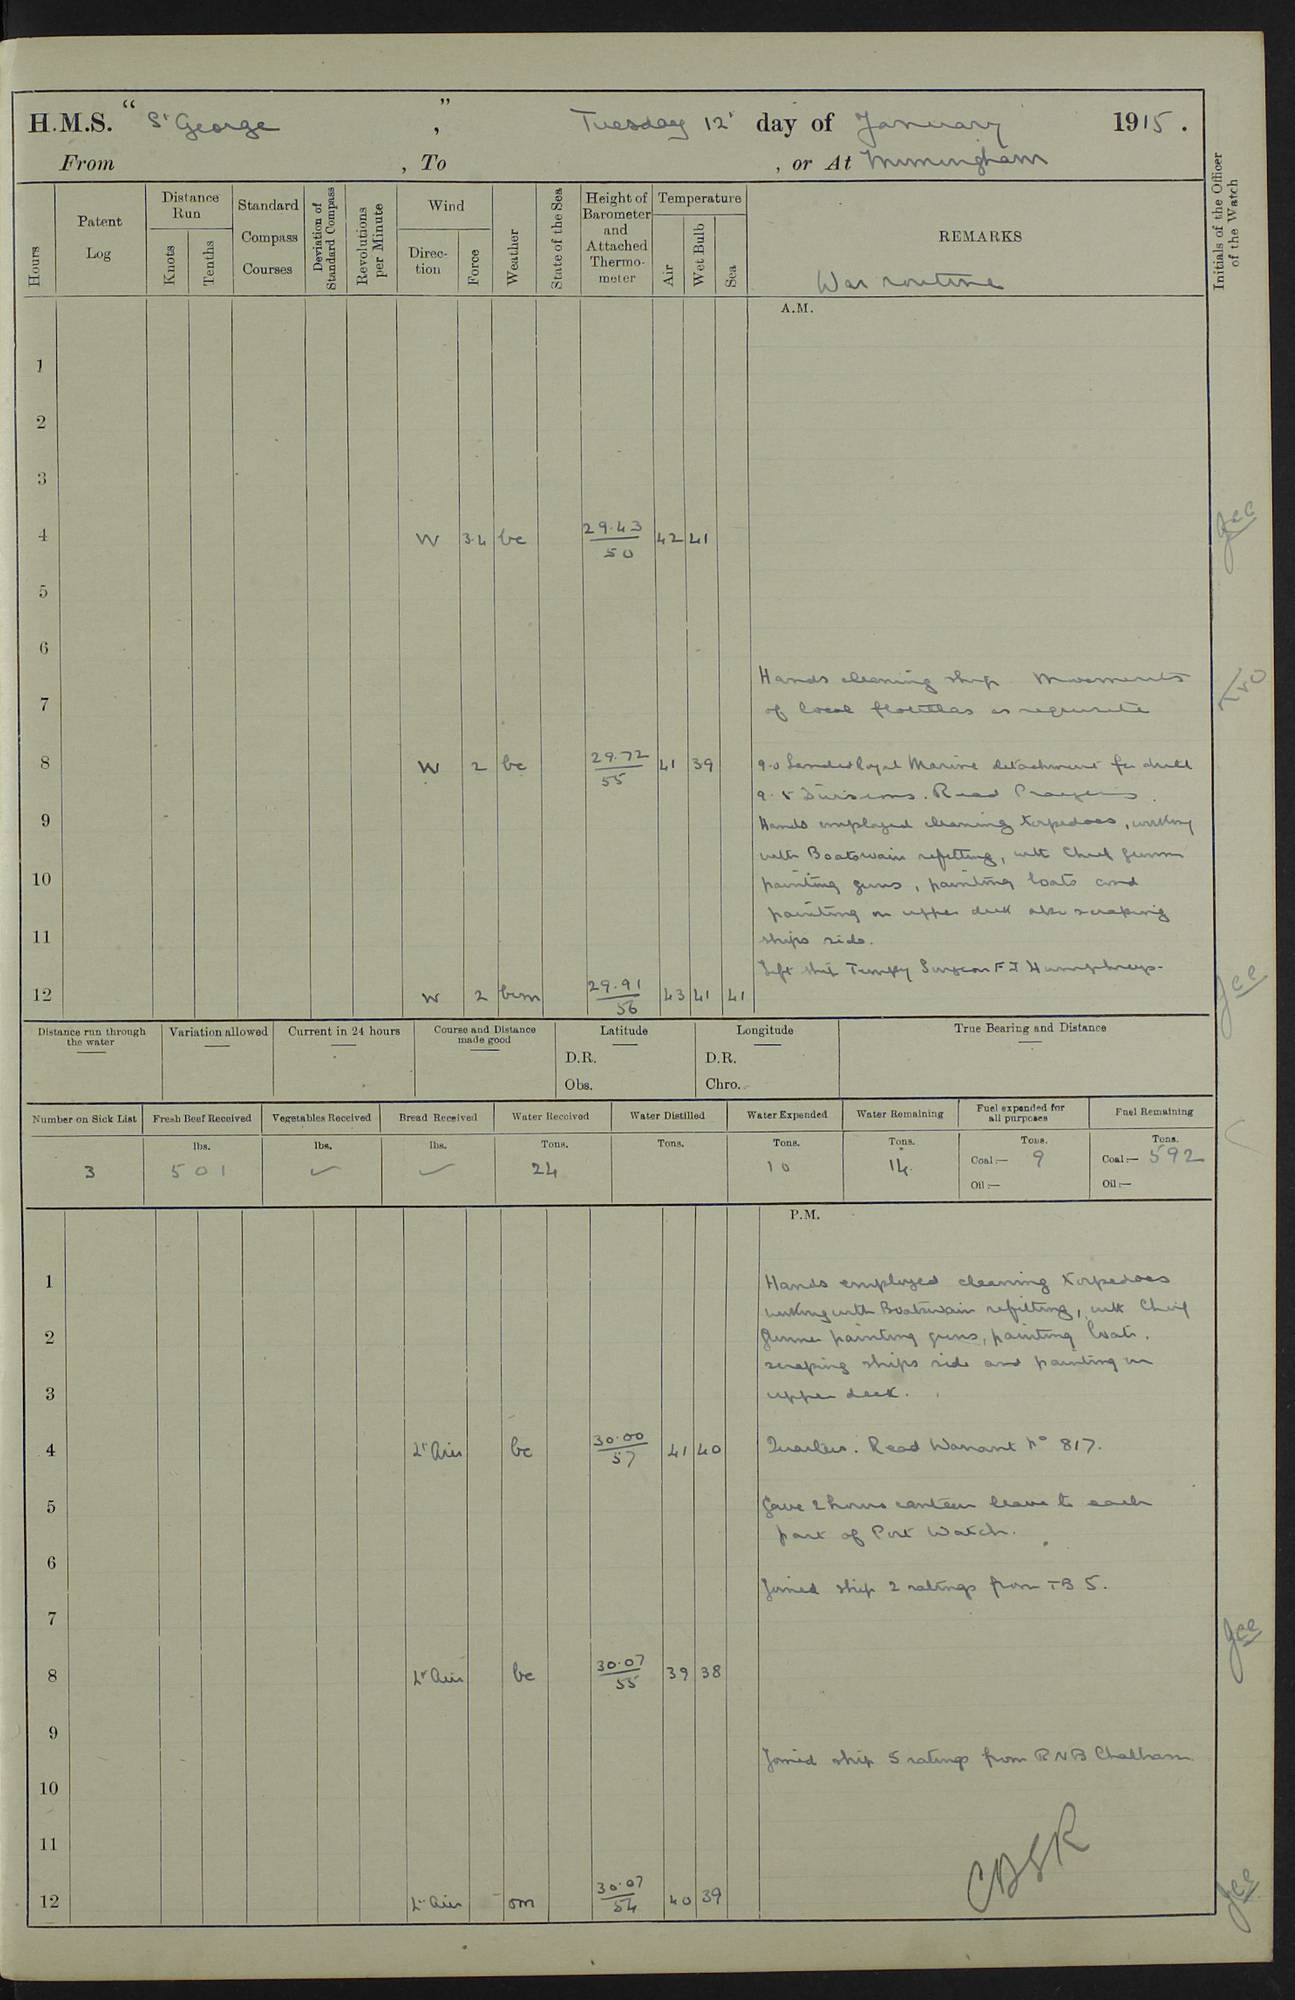 H.M.S. “ St George ”, Tuesday 12th day of January 1915.
From , To , or At Immingham
Hours
Patent Log
Distance Run
Knots
Tenths
Standard Compass Courses
Deviation of Standard Compass
Revolutions per Minute
Wind
Direction
Force
Weather
State of the Sea
Height of Barometer and Attached Thermometer
Temperature
Air
Wet Bulb
Sea
REMARKS
War routine
Initials of the Officer of the Watch
A.M.
1
2
3
4 W 3.4 bc 29.43/50 42 41
5
6
Hands cleaning ship Movements
7
of local flotillas as requisite
8 W 2 bc 29.72/55 41 39
9.0 Landed Royal Marine detachment for drill
9.5 Divisions. Read Prayers.
9
Hands employed cleaning torpedoes, working
with Boatswain refitting, with Chief Gunner
10
painting guns, painting boats and
painting on upper deck also scraping
11
ships side.
Left ship Tempy Surgeon F J Humphreys.
12 W 2 bcm 29.91/56 43 41 41
Distance run through the water
Variation allowed
Current in 24 hours
Course and Distance made good
Latitude
D.R.
Obs.
Longitude
D.R.
Chro.
True Bearing and Distance
Number on Sick List
Fresh Beef Received
Vegetables Received
Bread Received
Water Received
Water Distilled
Water Expended
Water Remaining
Fuel expended for all purposes
Fuel Remaining
lbs. lbs. lbs. Tons. Tons. Tons. Tons. Tons. Tons.
3 501 ✓ ✓ 24 10 14 Coal:— 9 Coal:— 592
Oil:— Oil:—
P.M.
1
Hands employed cleaning torpedoes
working with Boatswain refitting, with Chief
2
Gunner painting guns, painting boats.
scraping ships side and painting on
3
upper deck.
4 Lt Airs bc 30.00/57 41 40 Quarters. Read Warrant No 817.
5
Gave 2 hours canteen leave to each
part of Port Watch.
6
Joined ship 2 ratings from TB 5.
7
8 Lt Airs bc 30.07/55 39 38
9
Joined ship 5 ratings from RNB Chatham
10
11
12 Lt Airs om 30.07/54 40 39